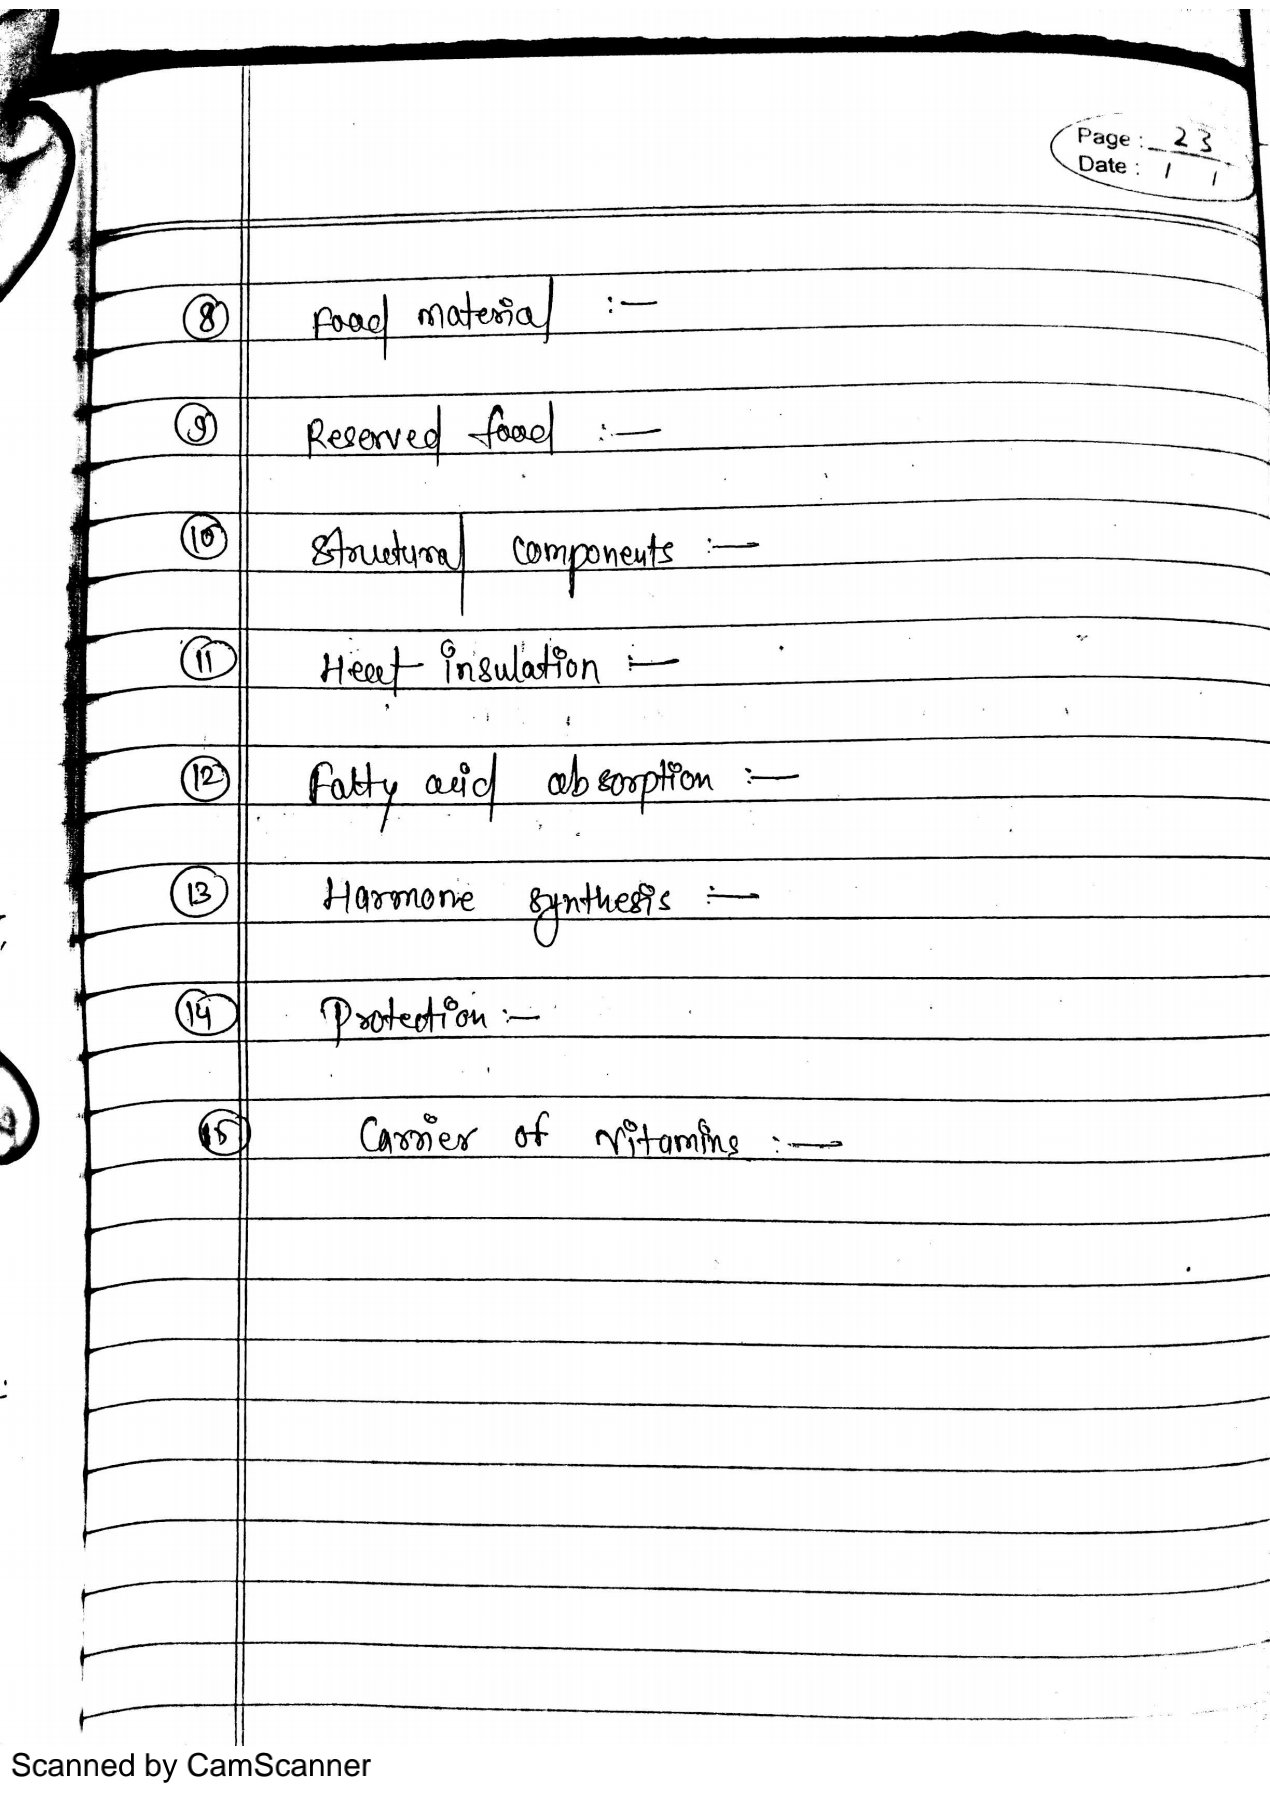 Page : 23
Date : / /
8 Food material :-
9 Reserved food :-
10 Structural components :-
11 Heat insulation :-
12 Fatty acid absorption :-
13 Harmone synthesis :-
14 Protection :-
15 Carrier of vitamins :-
Scanned by CamScanner